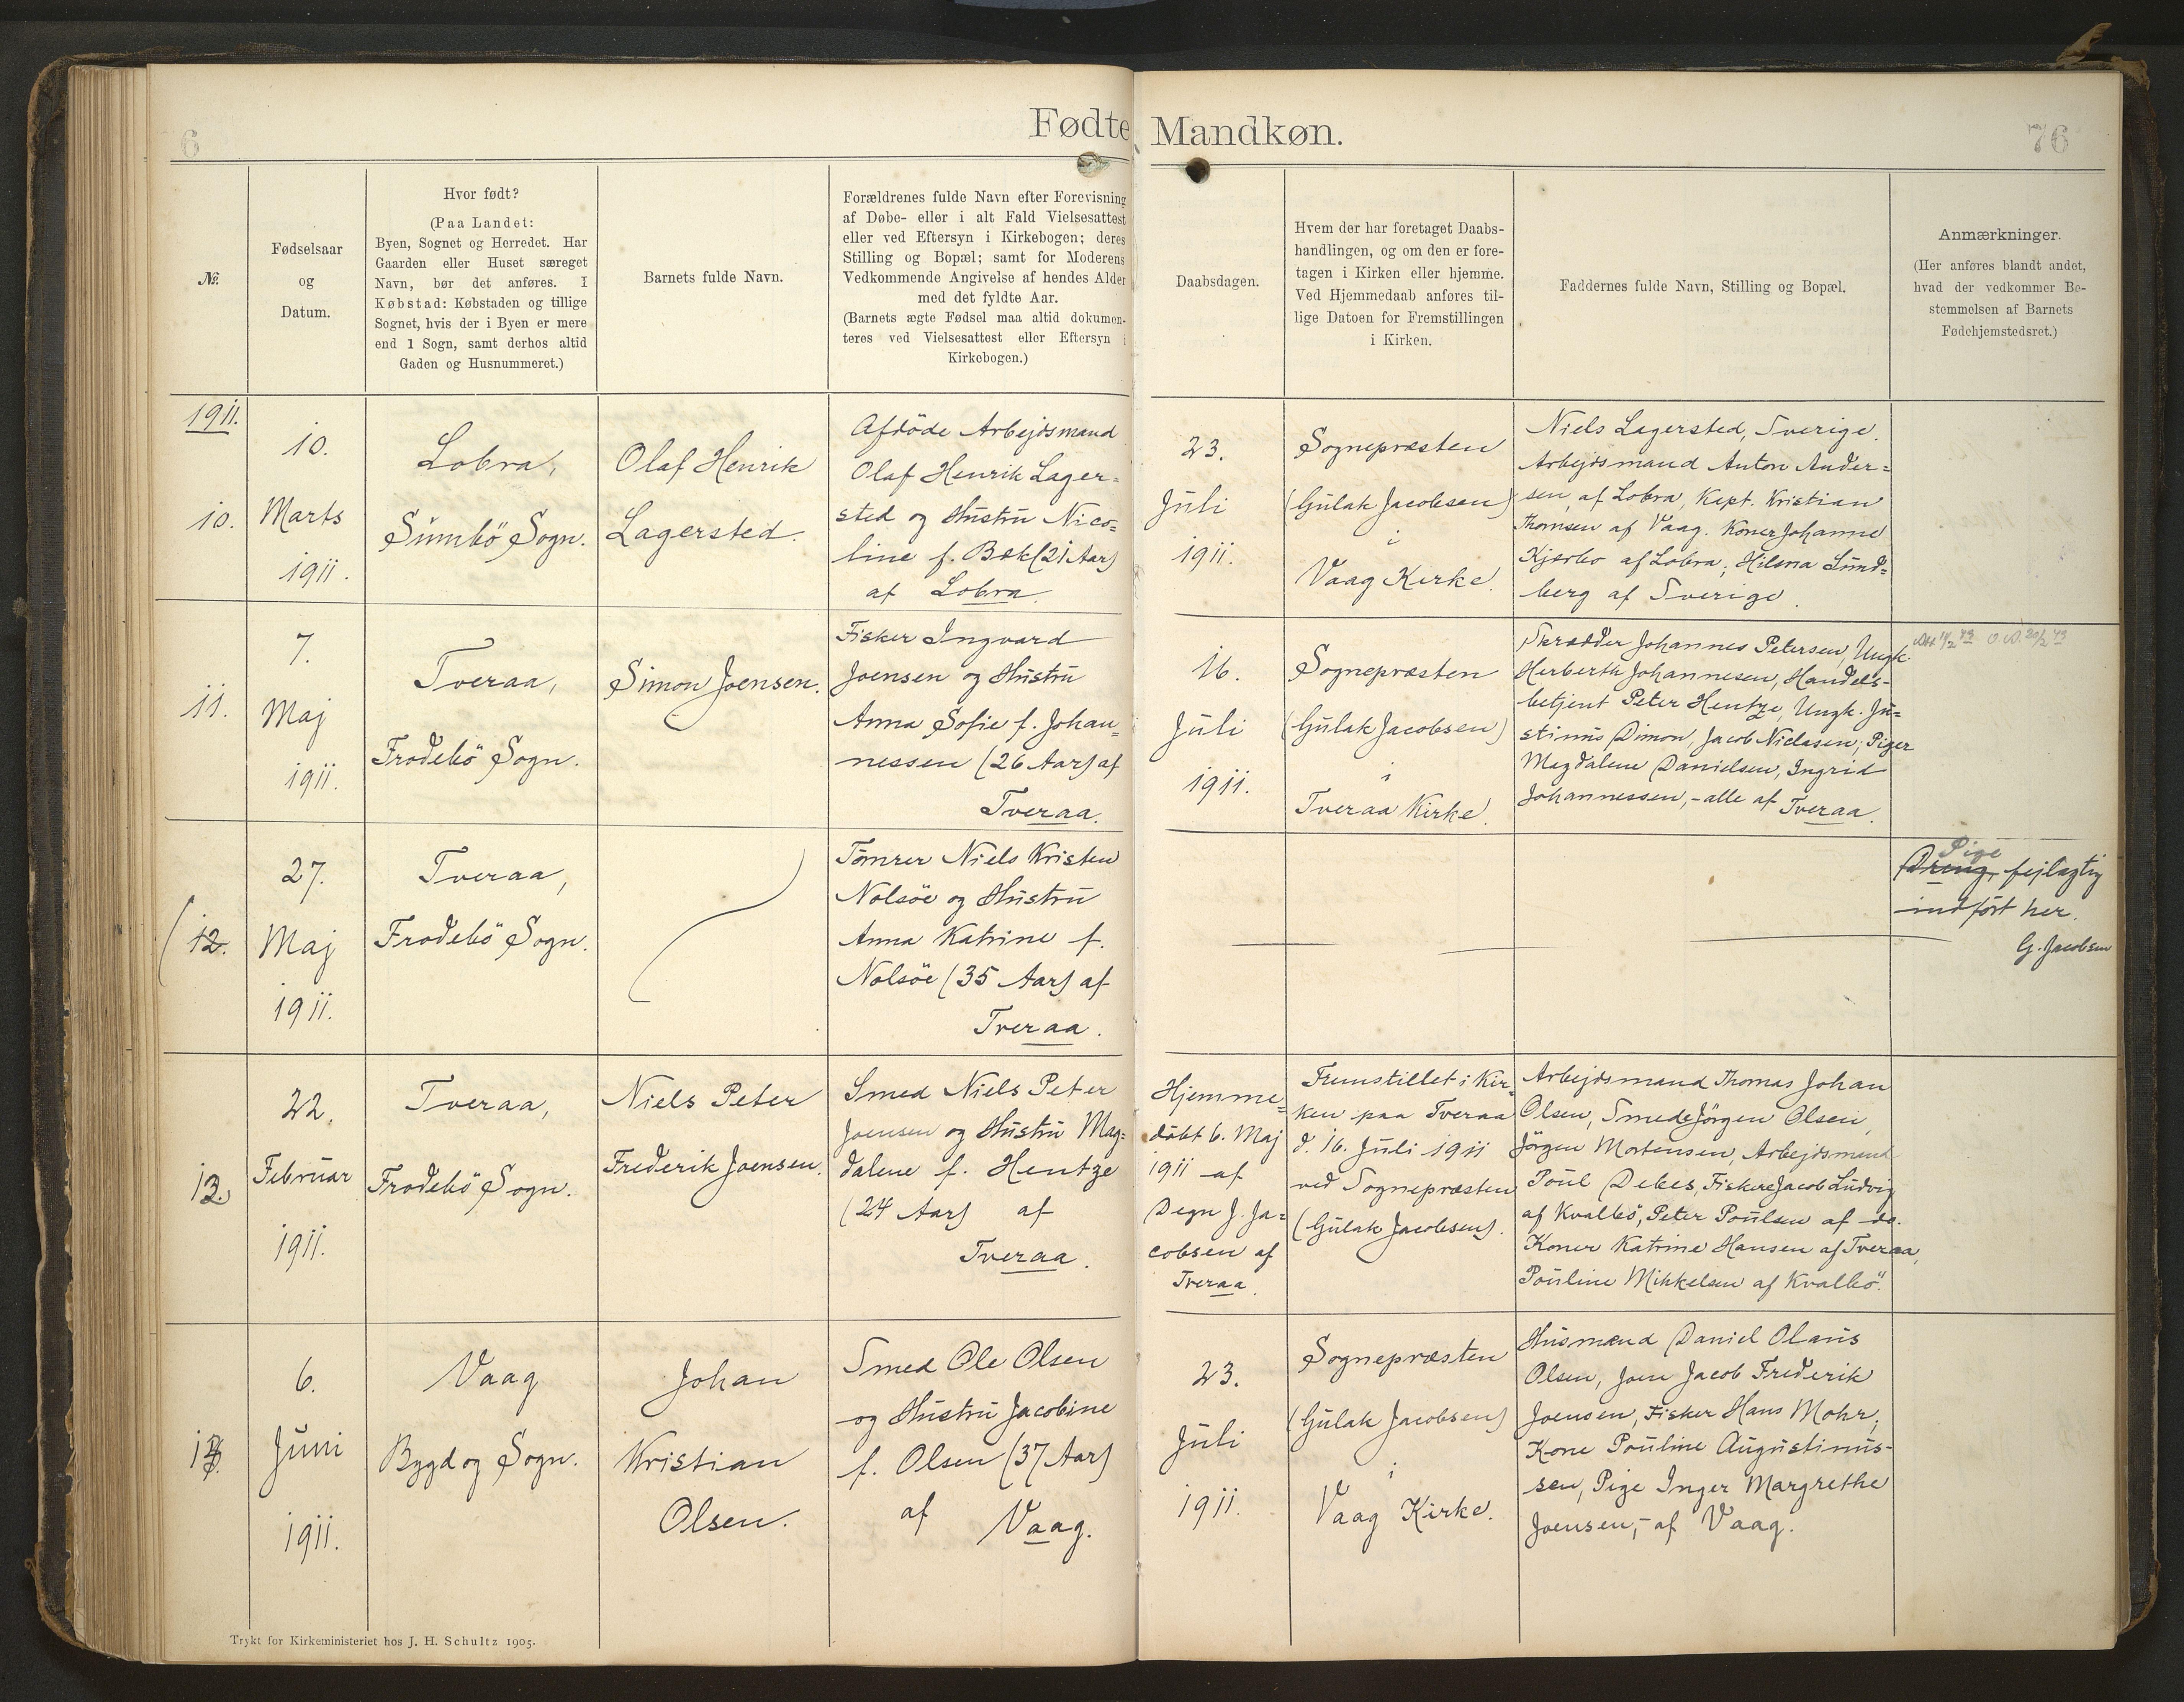 6
Fødte
Mandkøn.
76
№.
Fødselsaar
og
Datum.
Hvor født?
(Paa Landet:
Byen, Sognet og Herredet. Har
Gaarden eller Huset særeget
Navn, bør det anføres. I
Købstad: Købstaden og tillige
Sognet, hvis der i Byen er mere
end 1 Sogn, samt derhos altid
Gaden og Husnummeret.)
Barnets fulde Navn.
Forældrenes fulde Navn efter Forevisning
af Døbe- eller i alt Fald Vielsesattest
eller ved Eftersyn i Kirkebogen; deres
Stilling og Bopæl; samt for Moderens
Vedkommende Angivelse af hendes Alder
med det fyldte Aar.
(Barnets ægte Fødsel maa altid dokumen-
teres ved Vielsesattest eller Eftersyn i
Kirkebogen.)
Daabsdagen.
Hvem der har foretaget Daabs-
handlingen, og om den er fore-
tagen i Kirken eller hjemme.
Ved Hjemmedaab anføres til-
lige Datoen for Fremstillingen
i Kirken.
Faddernes fulde Navn, Stilling og Bopæl.
Anmærkninger.
(Her anføres blandt andet,
hvad der vedkommer Be-
stemmelsen af Barnets
Fødehjemstedsret.)
1911.
10.
10.
Marts
1911.
Lobra,
Sumbö Sogn.
Olaf Henrik
Lagersted.
Afdöde Arbejdsmand
Olaf Henrik Lager=
sted og Hustru Nico=
line f. Bek (21 Aar)
af Lobra.
23.
Juli
1911.
Sognepræsten
(Gulak Jacobsen)
i
Vaag Kirke.
Niels Lagersted, Sverige.
Arbejdsmand Anton Ander=
sen, af Lobra, Kapt. Kristian
Thomsen af Vaag. Koner Johanne
Kjærbo af Lobra; Hilma Lund=
berg af Sverige.
11.
7.
Maj
1911.
Tveraa,
Frodebö Sogn.
Simon Joensen.
Fisker Ingvard
Joensen og Hustru
Anna Sofie f. Johan=
nessen (26 Aar) af
Tveraa.
16.
Juli
1911.
Sognepræsten
(Gulak Jacobsen)
i
Tveraa Kirke.
Skrædder Johannes Petersen, Ungk.
Herberth Johannesen, Handels-
betjent Peter Hentze, Ungk. Ju=
stinus Dimon, Jacob Niclasen; Piger
Magdalene Danielsen, Ingrid
Johannessen, - alle af Tveraa.
(12.
27.
Maj
1911.
Tveraa,
Frodebö Sogn.
Tömrer Niels Kristen
Nolsöe og Hustru
Anna Katrine f.
Nolsöe (35 Aar) af
Tveraa.
Pige
Dreng, fejlagtig
indfört her.
G. Jacobsen
12.
22.
Februar
1911.
Tveraa,
Frodebö Sogn.
Niels Peter
Frederik Joensen.
Smed Niels Peter
Joensen og Hustru Mag=
dalene f. Hentze
(24 Aar) af
Tveraa.
Hjemme=
döbt 6. Maj
1911 af
Degn J. Ja=
cobsen af
Tveraa.
Fremstillet i Kir=
ken paa Tveraa
d. 16. Juli 1911
ved Sognepræsten
(Gulak Jacobsen).
Arbejdsmand Thomas Johan
Olsen, Smede Jörgen Olsen,
Jörgen Mortensen, Arbejdsmand
Poul Debes, Fiskere Jacob Ludvig
af Kvalbö, Peter Poulsen af do.
Koner Katrine Hansen af Tveraa,
Pouline Mikkelsen af Kvalbö.
13.
6.
Juni
1911.
Vaag
Bygd og Sogn.
Johan
Kristian
Olsen.
Smed Ole Olsen
og Hustru Jacobine
f. Olsen (37 Aar)
af Vaag.
23.
Juli
1911.
Sognepræsten
(Gulak Jacobsen)
i
Vaag Kirke.
Husmænd Daniel Olaus
Olsen, Joen Jacob Frederik
Joensen, Fisker Hans Mohr,
Kone Pouline Augustinus-
sen, Pige Inger Margrethe
Joensen, - af Vaag.
Trykt for Kirkeministeriet hos J. H. Schultz 1905.